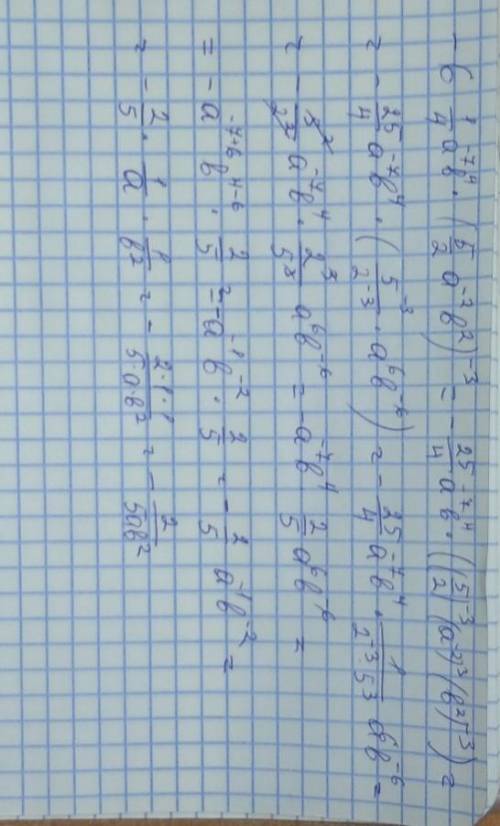 -6 1/4 a⁻⁷b⁴ · (5/2 a⁻²b²)⁻³ = -25/4 a⁻⁷b⁴ · ((5/2)⁻³ (a⁻²)⁻³ (b²)⁻³) =
= -25/4 a⁻⁷b⁴ · (5⁻³/2⁻³ · a⁶b⁻⁶) = -25/4 a⁻⁷b⁴ · 1/(2⁻³·5³) a⁶b⁻⁶ =
a⁻⁷b⁴ · 2³/5³ a⁶b⁻⁶ = -a⁻⁷b⁴ 2/5 a⁶b⁻⁶ =
= -a⁻⁷⁺⁶b⁴⁻⁶ · 2/5 = -a⁻¹b⁻² · 2/5 = -2/5 a⁻¹b⁻² =
= -2/5 · 1/a · 1/b² = -(2·1·1)/(5·ab²) = -2/(5ab²)